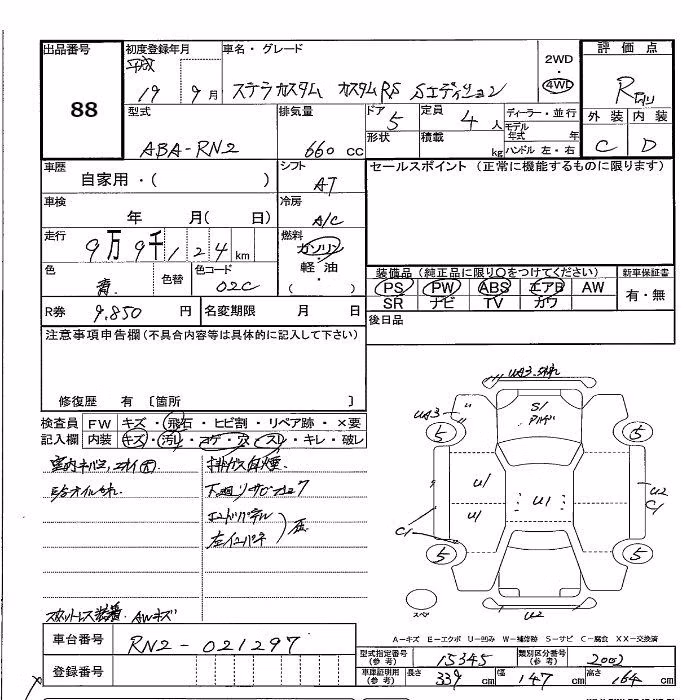 出品番号
88
初度登録年月
平成
19 9月
車名・グレード
ステラカスタム カスタムRS Sエディション
2WD
・
4WD
評価点
R
外装 内装
C D
型式
ABA-RN2
排気量
660 cc
ドア 5
形状
定員 4 人
積載 kg
ディーラー・並行
モデル年式 年
ハンドル 左・右
車歴
自家用・( )
シフト
AT
セールスポイント (正常に機能するものに限ります)
車検
年 月( 日)
冷房
A/C
走行
9万9千124km
燃料
ガソリン
・
軽油
・
( )
色
青
色替
色コード
02C
装備品 (純正品に限り○をつけてください)
PS PW ABS エアB AW
SR ナビ TV カワ
新車保証書
有・無
R券 9,850 円
名変期限 月 日
後日品
注意事項申告欄 (不具合内容等は具体的に記入して下さい)
修復歴 有 〔箇所 〕
検査員
記入欄
FW キズ・飛石・ヒビ割・リペア跡・×要
内装 キズ・汚レ・コゲ・穴・スレ・キレ・破レ
排ガス白煙
下廻りサビ
AWキズ
UA3
UA3
S1
5
5
5
5
U1
U1
U1
U2
C1
C1
U2
スペア
A-キズ E-エクボ U-凹み W-補修跡 S-サビ C-腐食 XX-交換済
車台番号
RN2-021297
登録番号
型式指定番号
(参考)
15345
類別区分番号
(参考)
2002
車庫証明用
(参考)
長さ 339 cm
幅 147 cm
高さ 164 cm